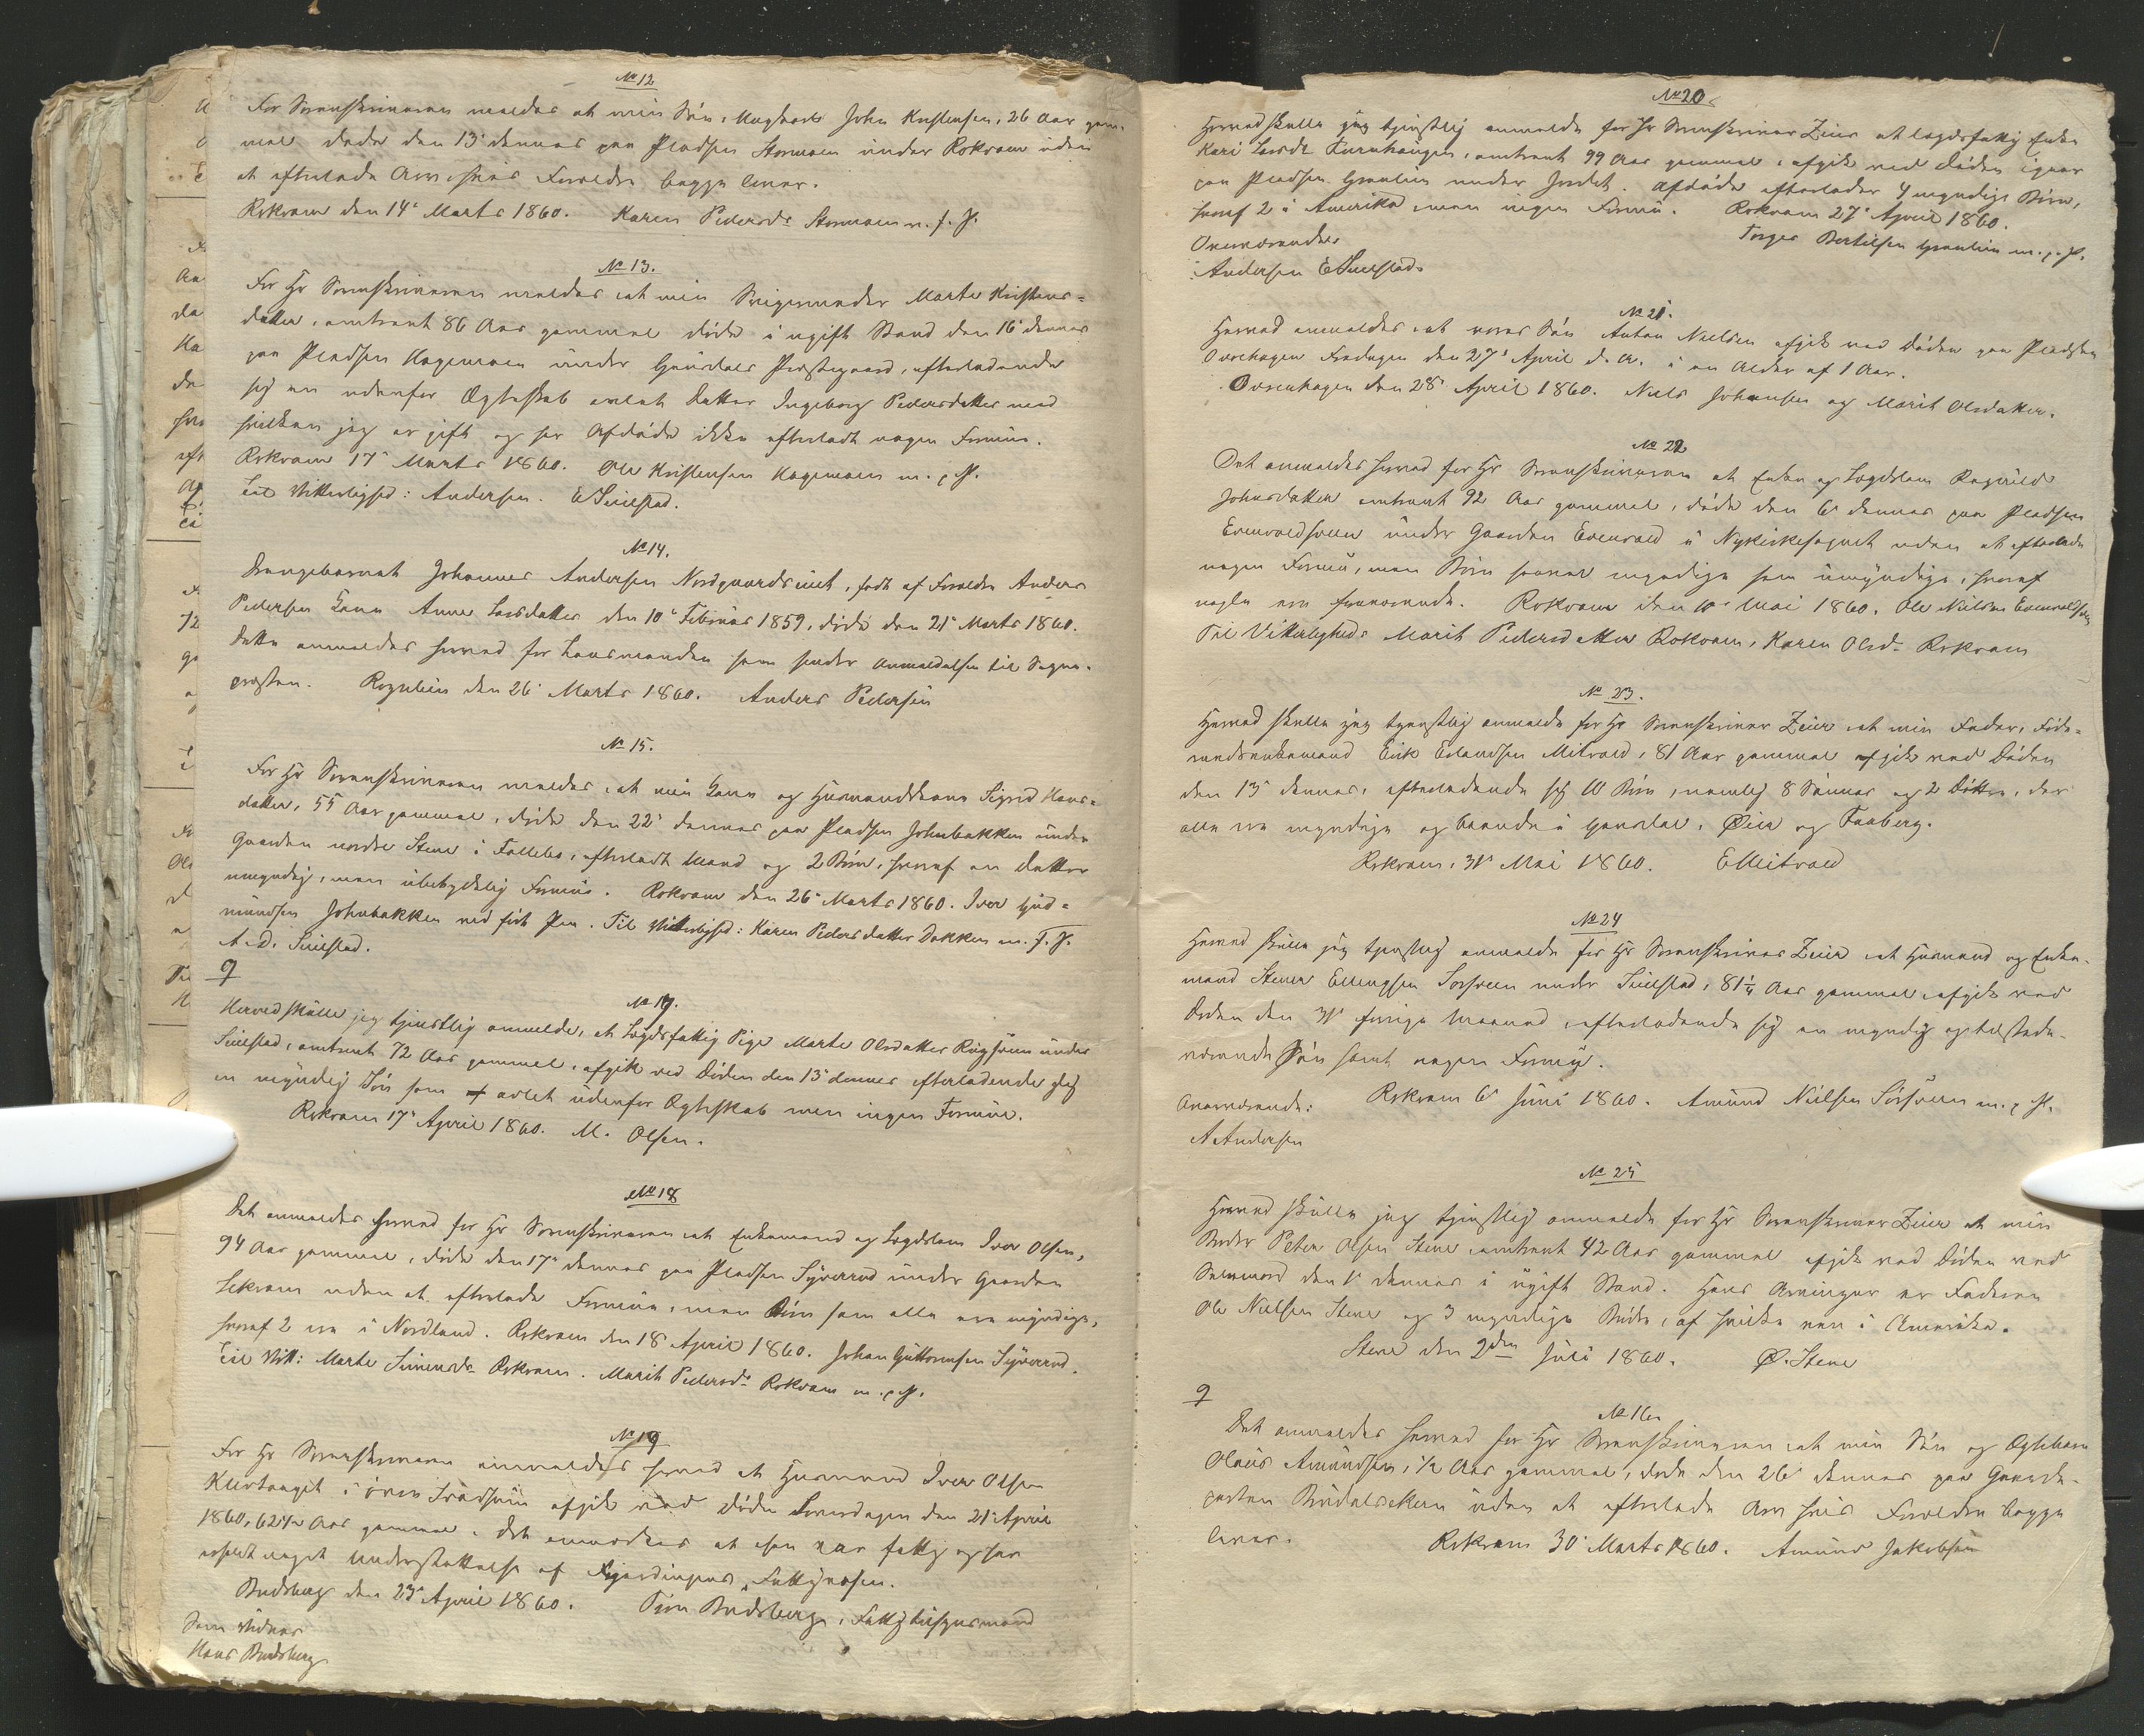 No 12
For Sorenskriveren meldes at min Søn, Ungkarl John Kristensen, 26 Aar gam-
mel døde den 13de dennes paa Pladsen Stormoen under Rokvam uden
at efterlade Arv, hvis Forældre begge lever.
Rokvam den 14de Marts 1860. Karen Pedersdr Stormoen m. f. P.
No 13.
For Hr Sorenskriveren meldes, at min Svigermoder Marte Kristens-
datter, omtrent 86 Aar gammel døde i ugift Stand den 16de dennes
paa Pladsen Hagemoen under Gausdals Præstegaard, efterladende
sig en udenfor Ægteskab avlet Datter Ingeborg Pedersdatter med
hvilken jeg er gift og har Afdøde ikke efterladt nogen Formue.
Rokvam 17de Marts 1860. Ole Kristensen Hagemoen m. p. P.
Til Vitterlighed: Andersen. E Suilstad.
No 14.
Drengebarnet Johannes Andersen Nordgaardseiet, født af Forældre Anders
Pedersen Kone Anne Larsdatter den 10de Februar 1859, døde den 21de Marts 1860.
Dette anmeldes herved for Lensmanden som sender Anmeldelsen til Sogne-
præsten. Rognlien den 26de Marts 1860. Anders Pedersen
No 15.
For Hr Sorenskriveren meldes, at min Kone og Huusmandskone Sigrid Hans-
datter, 55 Aar gammel, døde den 22de dennes paa Pladsen Johnsbakken under
Gaarden nordre Steine i Follebo, efterladt Mand og 2 Børn, hvoraf en Datter
umyndig, men ubetydelig Formue. Rokvam den 26de Marts 1860. Iver Gud-
mundsen Johnsbakken ved ført Pen. Til Vitterlighed: Karen Pedersdatter Dokken m. f. P.
A. D. Suilstad.
No 17.
Herved skulle jeg tjenstlig anmelde, at Lægdsfattig Pige Marte Olsdatter Rugsveen under
Suilstad, omtrent 72 Aar gammel, afgik ved Døden den 13de dennes efterladende sig
en myndig Søn som avlet udenfor Ægteskab men ingen Formue.
Rokvam 17de April 1860. M. Olsen.
No 18
Det anmeldes herved for Hr Sorenskriveren at Enkemand og Lægdslem Iver Olsen,
94 Aar gammel, døde den 17de dennes paa Pladsen Syverrud under Gaarden
uden at efterlade Formue, men Børn som alle ere myndige,
hvoraf 2 ere i Nordland. Rokvam den 18de April 1860. Johan Guttormsen Syverrud.
Til Vitt: Marte Simensdr Rokvam. Marit Pedersdr Rokvam m. p. P.
No 19
For Hr Sorenskriveren anmeldes herved at Huusmand Iver Olsen
i øvre afgik ved Døden Løverdagen den 21de April
1860, 62 1/2 Aar gammel. Det anmærkes at han var fattig og har
erholdt noget Understøttelse af Fjerdingens Fattigvæsen.
Budsberg den 23de April 1860. Budsberg, Fattigtilsynsmand
Som Vidner
Hans Budsberg
No 20
Herved skulle jeg tjenstlig anmelde for Hr Sorenskriver Zeier at lægdsfattig Enke
Kari Larsdr, omtrent 99 Aar gammel, afgik ved Døden igaar
paa Pladsen Granlien under. Afdøde efterlader 4 myndige Børn,
hvoraf 2 i Amerika men ingen Formue. Rokvam 27de April 1860.
Overværende: Torger Bertelsen Granlien m. p. P.
Andersen E Suilstad.
No 21.
Herved anmeldes, at vores Søn Anton Nielsen afgik ved Døden paa Pladsen
Ovrehagen Fredagen den 27de April d. A. i en Alder af 1 Aar.
Ovrenhagen den 28de April 1860. Niels Johansen og Marit Olsdatter.
No 22
Det anmeldes herved for Hr Sorenskriveren at Enke og Lægdslem Ragnild
Johnsdatter omtrent 92 Aar gammel, døde den 6te dennes paa Pladsen
Evenvoldsveen under Gaarden Evenvold i Nykirkesognet uden at efterlade
nogen Formue, men Børn saavel myndige som umyndige, hvoraf
nogle ere fraværende. Rokvam den 10de Mai 1860. Ole Nielsen Evenvoldsveen
Til Vitterlighed: Marit Pedersdatter Rokvam, Karen Olsdr Rokvam
No 23.
Herved skulle jeg tjenstlig anmelde for Hr Sorenskriver Zeier, at min Fader, Føde-
raadsenkemand Erik Erlandsen Mitvold, 81 Aar gammel afgik ved Døden
den 13de dennes, efterladende sig 10 Børn, nemlig 8 Sønner og 2 Døttre, der
alle ere myndige og boende i Gausdal, Øier og Faaberg.
Rokvam, 31te Mai 1860. E Mitvold
No 24
Herved skulle jeg tjenstlig anmelde for Hr Sorenskriver Zeier at Husmand og Enke-
mand Stener Ellingsen Sørsveen under Suilstad, 81 1/4 Aar gammel afgik ved
Døden den 31te forrige Maaned, efterladende sig en myndig og tilstede-
værende Søn samt nogen Formue.
Overværende: Rokvam 6te Juni 1860. Amund Nielsen Sørsveen m. p. P.
A Andersen
No 25
Herved skulle jeg tjenstlig anmelde for Hr Sorenskriver Zeier at min
Broder Peter Olsen Stene omtrent 42 Aar gammel afgik ved Døden ved
Selvmord den 1ste dennes i ugift Stand. Hans Arvinger er Faderen
Ole Nielsen Stene og 3 myndige Brødre, af hvilke een i Amerika.
Stene den 2den Juli 1860. O. Stene
No 16
Det anmeldes herved for Hr Sorenskriveren, at min Søn og Ægtebarn
Olaus Amundsen, 1/2 Aar gammel, døde den 26de dennes paa Gaard-
parten uden at efterlade Arv hvis Forældre begge
lever. Rokvam 30de Marts 1860. Amund Jakobsen